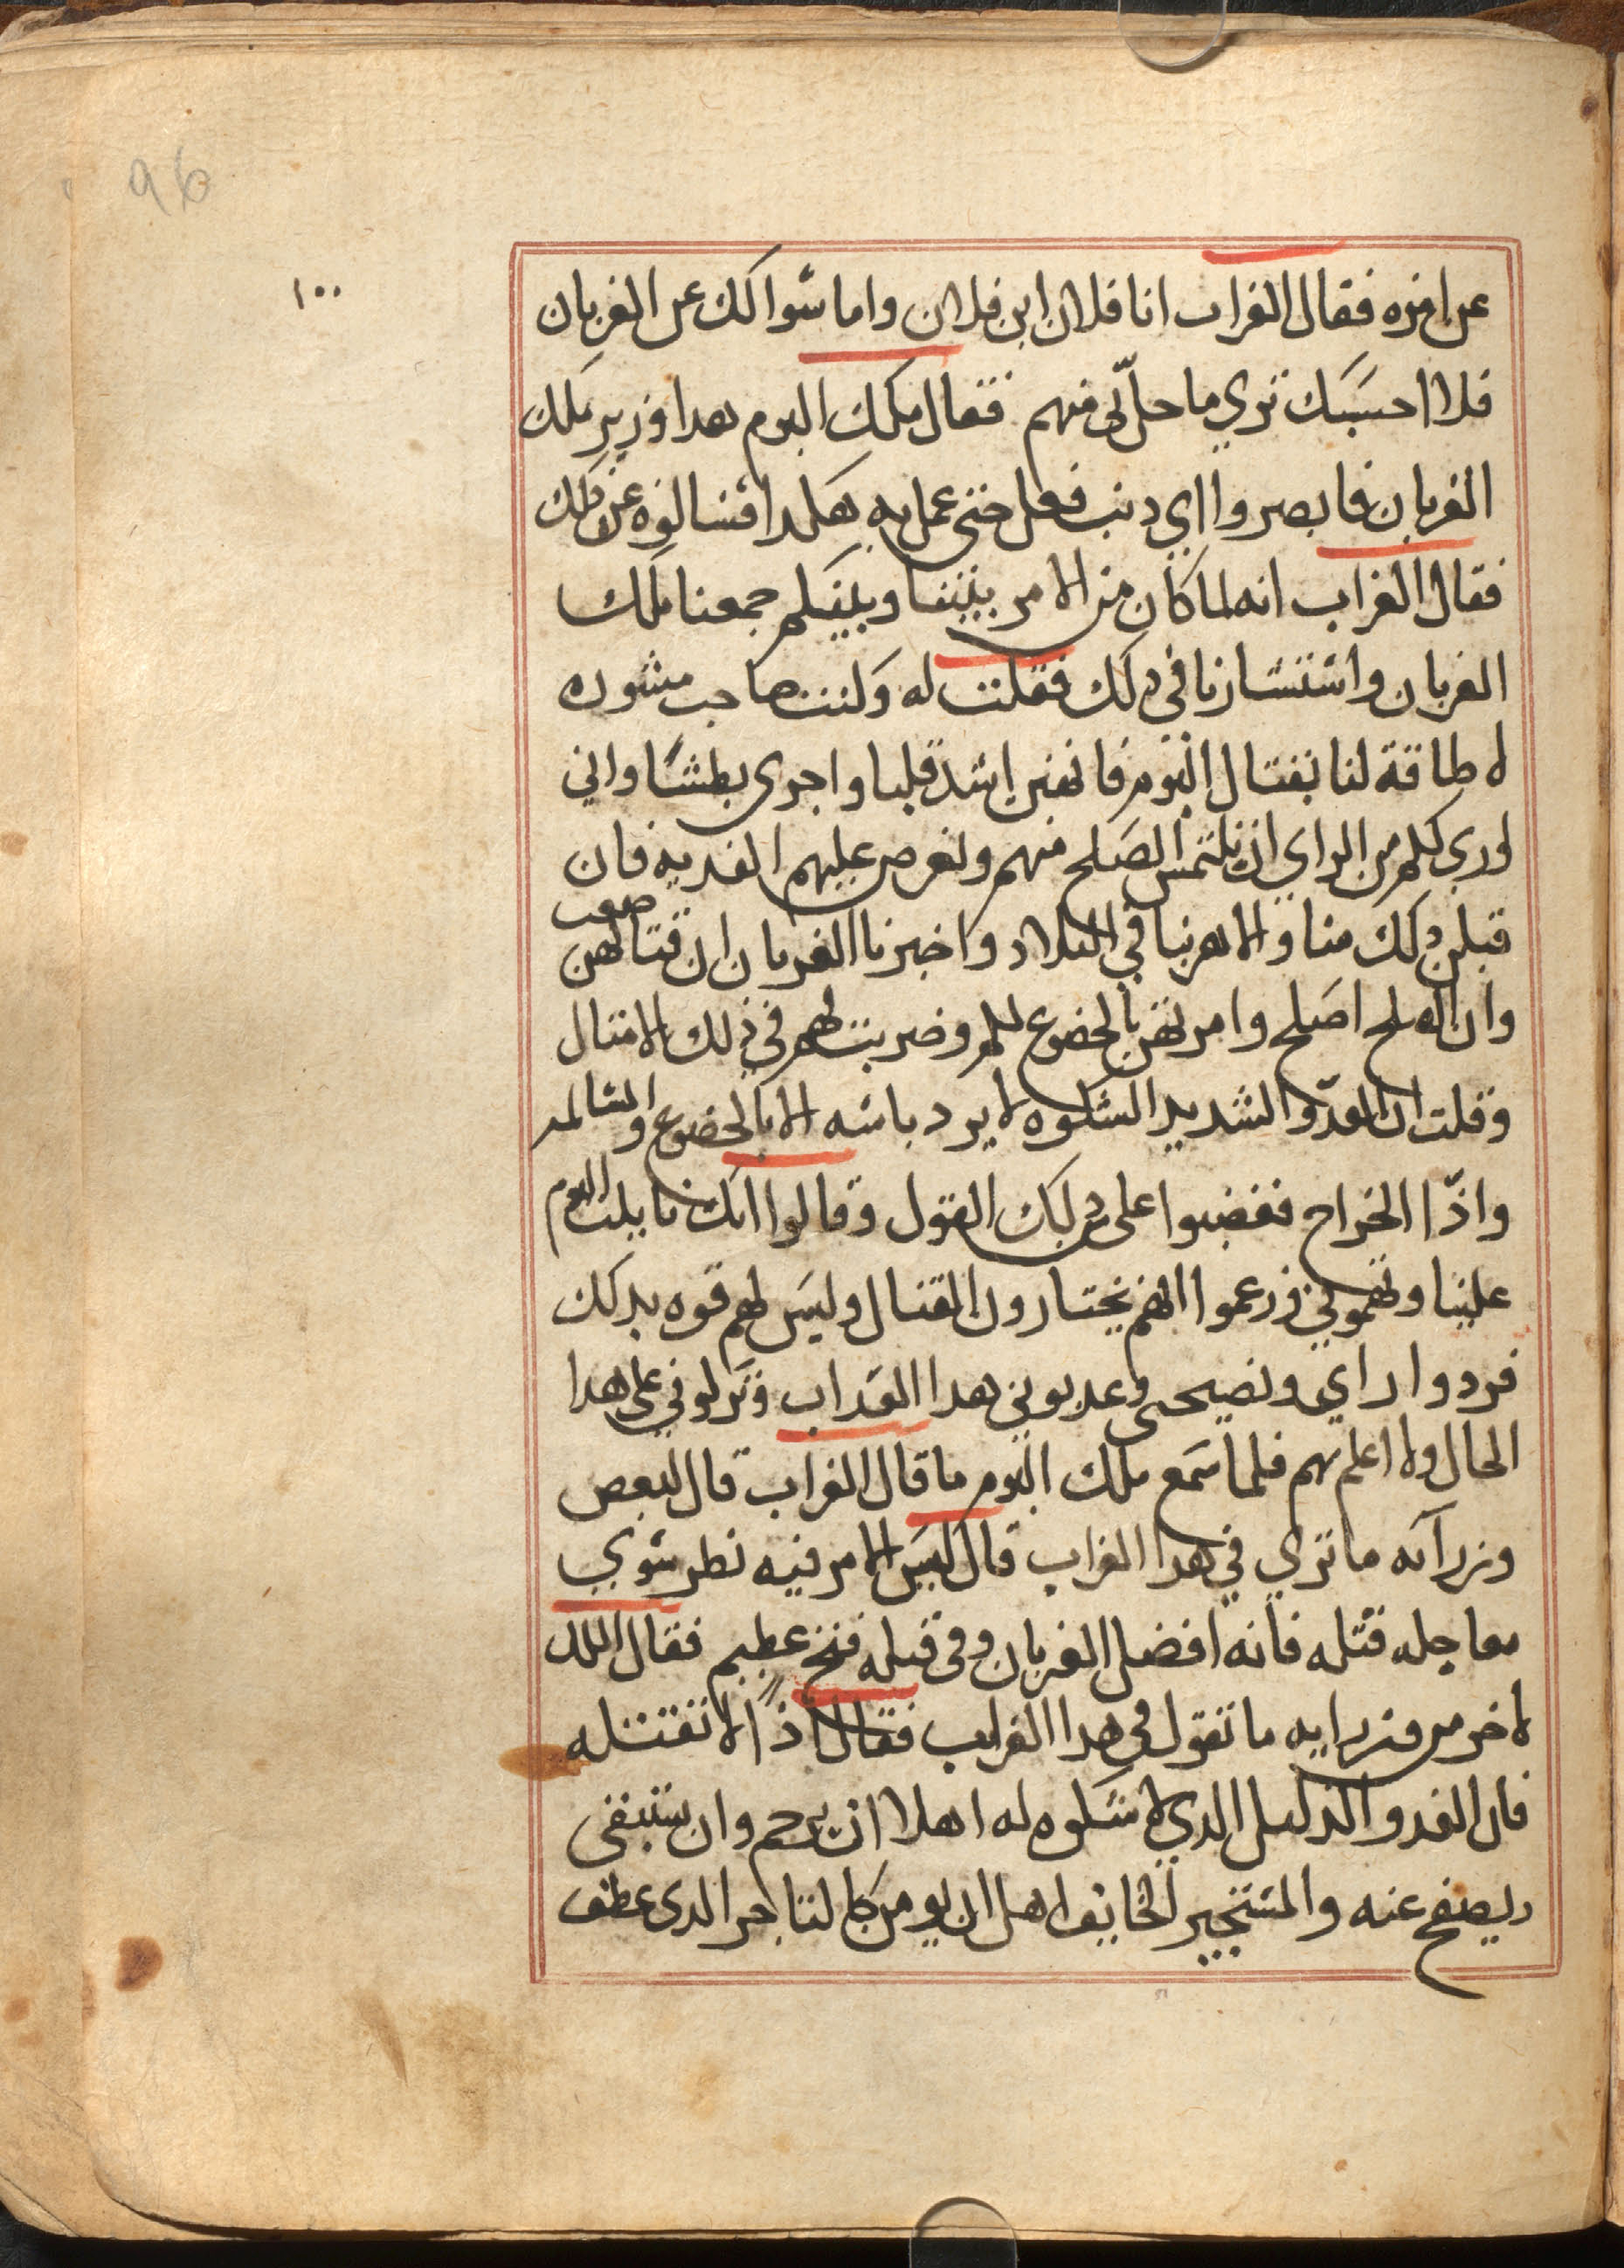 96
١٠٠
عن امره فقال الغراب انا فلان ابن فلان واما سوالك عن الغربان
فلا احسبك تري ما حل بي منهم فقال ملك البوم هدا وزير ملك
الغربان فابصروا اي دنب فعل حتي عمل به هكدا فسالوه عن دلك
فقال الغراب انه لما كان من الامر بيننا وبينكم جمعنا ملك
الغربان واستشارنا في دلك فقلت له وكنت صاحب مشوره
لا طاقة لنا بقتال البوم فانهن اشد قلبا واجرى بطشا واني
اري لكم من الراي ان نلتمس الصلح منهم ونعرض عليهم الفديه فان
قبلن دلك منا والا هربنا في البلاد واخبرنا الغربان ان قتالهن صعب
وان الصلح اصلح وامرتهن بالخضوع لكم وضربت لهم في ذلك الامتال
وقلت ان العدو الشديد الشكوه لا يرد باسه الا بالخضوع والمسالمه
واذا الخراج فغضبوا على من دلك القول وقالوا انك مايلت البوم
علينا وتهموني وزعموا انهم يختارون القتال وليس لهم قوه بدلك
فردوا راي ونصيحتي وعدبوني هدا العداب وتركوني علي هدا
الحال ولا اعلم بهم فلما سمع ملك البوم ما قال الغراب قال لبعض
وزرآئه ما تري في هدا الغراب قال ليس الامر فيه نطر سوي
معاجله قتله فانه افضل الغربان وفي قتله فتح عظيم فقال الملك
لاخر من وزرايه ما تقول في هدا الغراب فقال اذًا لا تقتله
فان العدو الذليل الدي لا شكوه له اهلا ان يرحم وان يستبقى
ويصفح عنه والمستجير الخايف اهل ان يومن كالتاجر الدى عطف